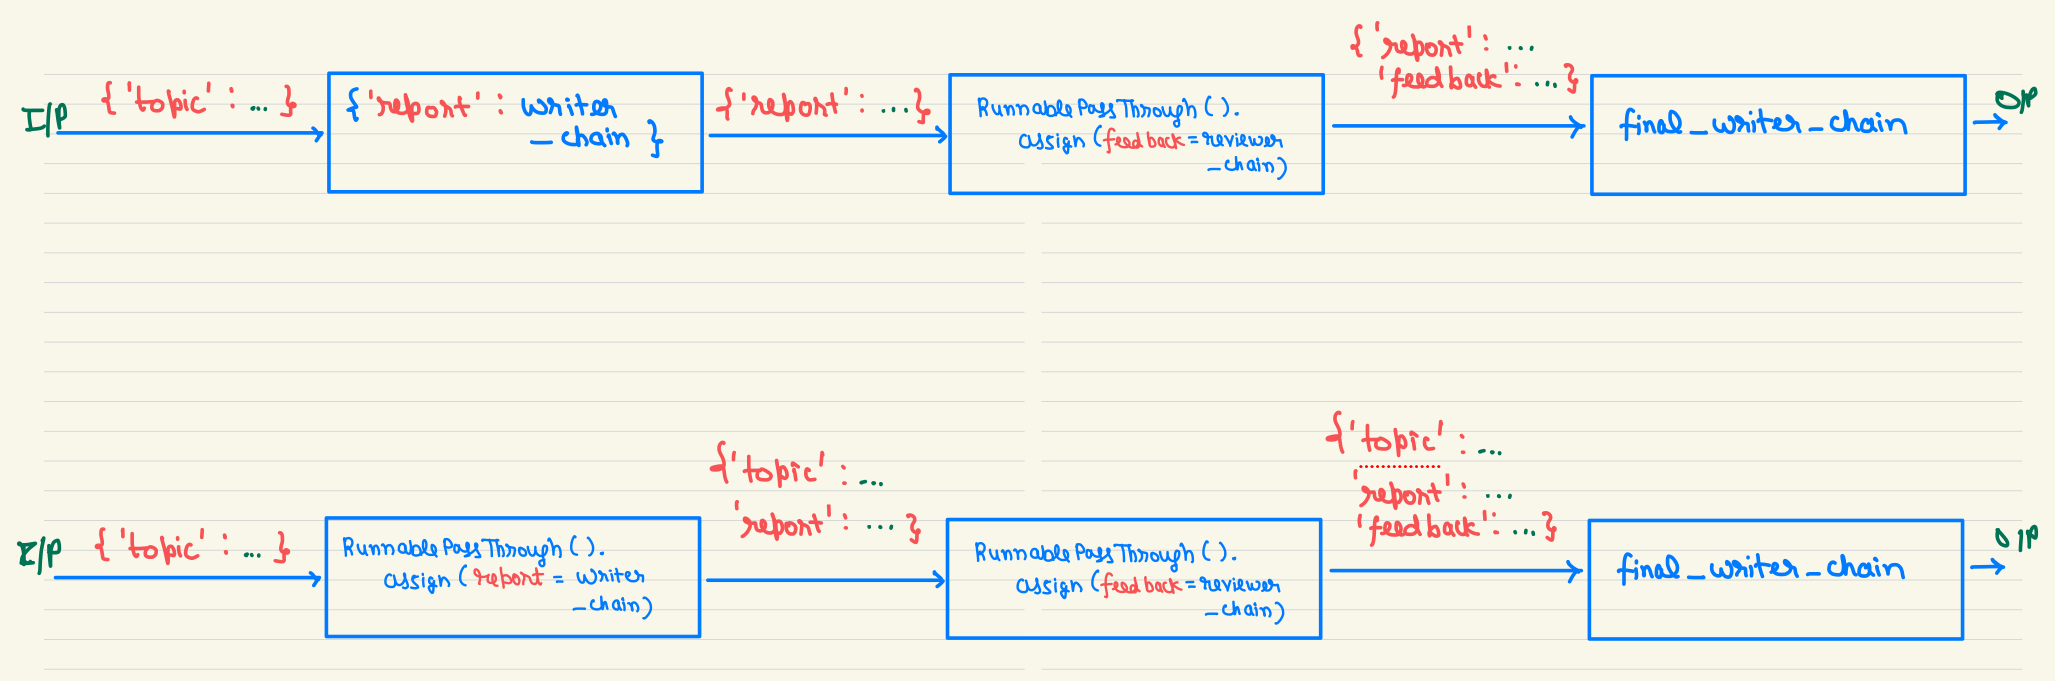 I/P
{ 'topic' : ... }
{ 'report' : writer
_chain }
{ 'report' : ... }
RunnablePassThrough ( ).
assign (feedback = reviewer
_chain)
{ 'report' : ...
'feedback' : ... }
final_writer_chain
O/P
I/P
{ 'topic' : ... }
RunnablePassThrough ( ).
assign ( report = writer
_chain)
{ 'topic' : ...
'report' : ... }
RunnablePassThrough ( ).
assign (feedback = reviewer
_chain)
{ 'topic' : ...
'report' : ...
'feedback' : ... }
final_writer_chain
O/P